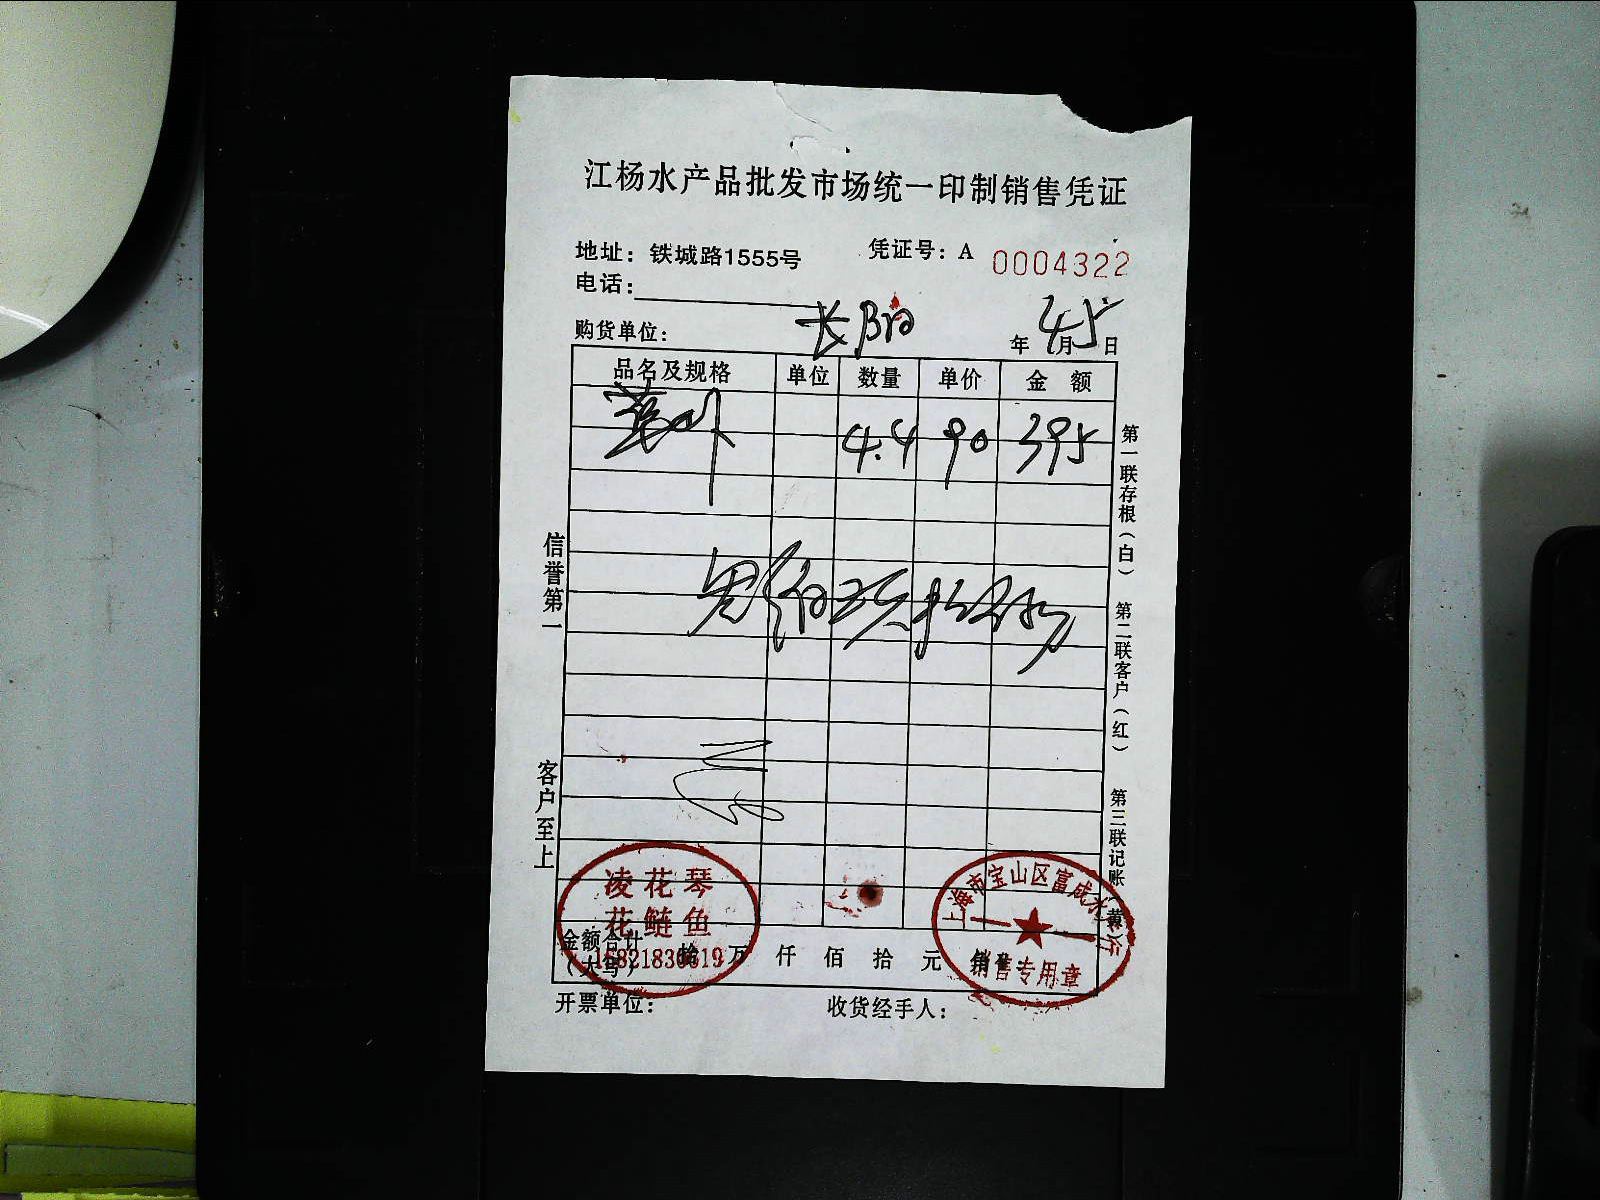 江杨水产品批发市场统一印制销售凭证
地址：铁城路1555号
凭证号：A 0004322
电话：
购货单位：
年 4月5日
品名及规格 单位 数量 单价 金 额
4.4 90 395
信誉第一
客户至上
第一联存根（白）
第二联客户（红）
第三联记账 黄
凌花琴
花鲢鱼
金额合计
（大写） 拾 万 仟 佰 拾 元
上海市宝山区富成水产行
销售专用章
开票单位：
收货经手人：